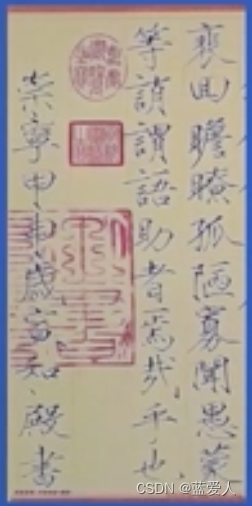 裵回瞻眺孤陋寡聞愚蒙
等誚謂語助者焉哉乎也
崇寧甲申歲宣和殿書
CSDN @蓝爱人